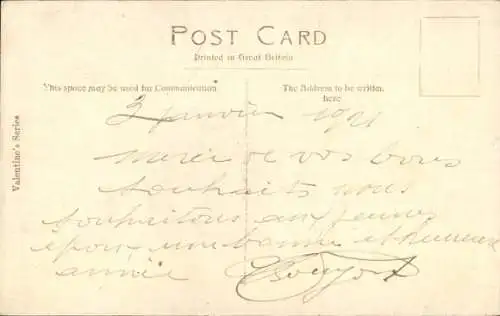 POST CARD
Printed in Great Britain
This space may be used for Communication
The Address to be written here
Valentine's Series
3 janvier 1921
merci de vos bons
souhaits nous
souhaitons aux jeunes
époux une bonne et heureuse
année